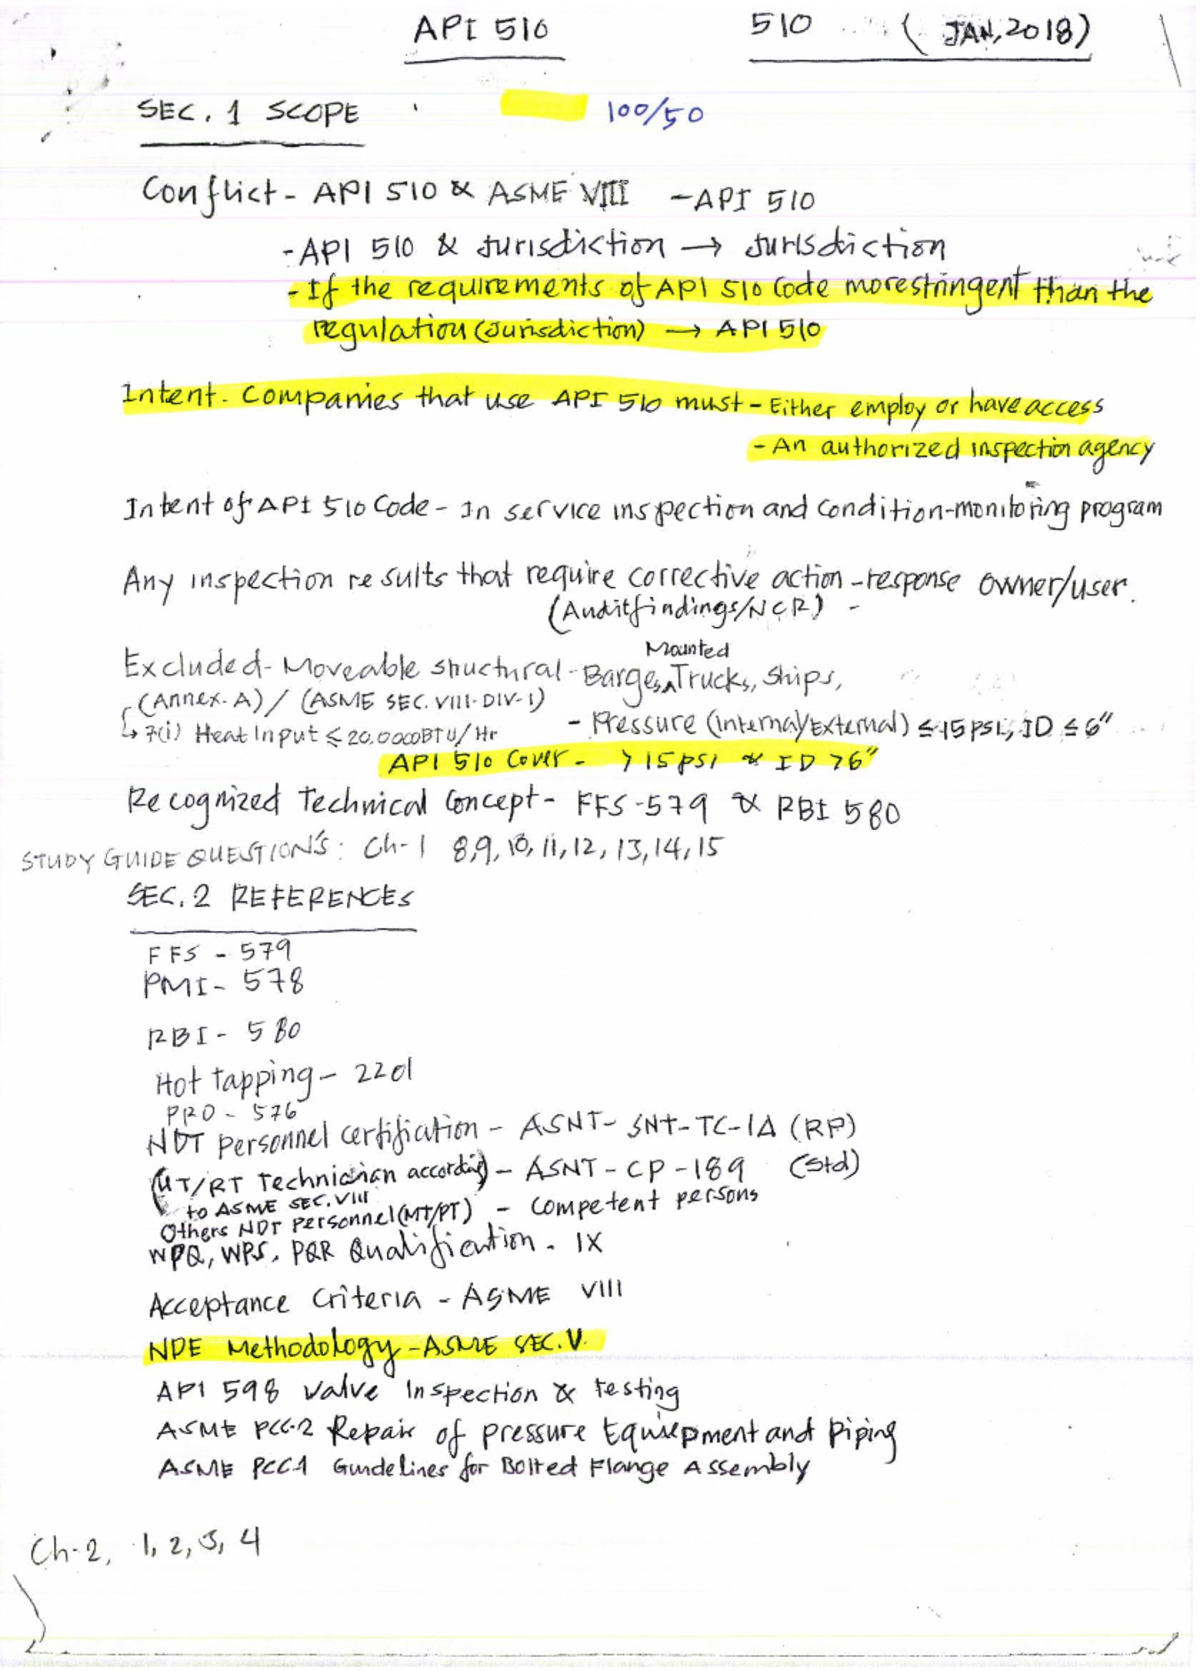 API 510 510 (JAN, 2018)
SEC. 1 SCOPE 100/50
Conflict - API 510 & ASME VIII - API 510
- API 510 & Jurisdiction → Jurisdiction
- If the requirements of API 510 Code more stringent than the
regulation (Jurisdiction) → API 510
Intent - Companies that use API 510 must - Either employ or have access
- An authorized inspection agency
Intent of API 510 Code - In service inspection and condition-monitoring program
Any inspection results that require corrective action - response owner/user.
(Audit findings/NCR) -
Mounted
Excluded - Moveable structural - Barges, Trucks, Ships,
(Annex. A) / (ASME SEC. VIII-DIV-1)
- Pressure (Internal/External) ≤ 15 psi, ID ≤ 6"
↳ 7(i) Heat Input ≤ 20.0000BTU/Hr
API 510 Cover - > 15 psi & ID > 6"
Recognized Technical Concept - FFS-579 & RBI 580
STUDY GUIDE QUESTION'S: Ch-1 8,9, 10, 11, 12, 13, 14, 15
SEC. 2 REFERENCES
FFS - 579
PMI - 578
RBI - 580
Hot tapping - 2201
PRD - 576
NDT personnel certification - ASNT- SNT-TC-1A (RP)
(UT/RT Technician according - ASNT - CP - 189 (Std)
to ASME SEC. VIII
Others NDT Personnel (MT/PT) - Competent persons
WPQ, WPS, PQR Qualification - IX
Acceptance Criteria - ASME VIII
NDE Methodology - ASME SEC. V.
API 598 Valve Inspection & testing
ASME PCC-2 Repair of pressure Equipment and piping
ASME PCC-1 Guidelines for Bolted Flange Assembly
Ch-2, 1, 2, 3, 4